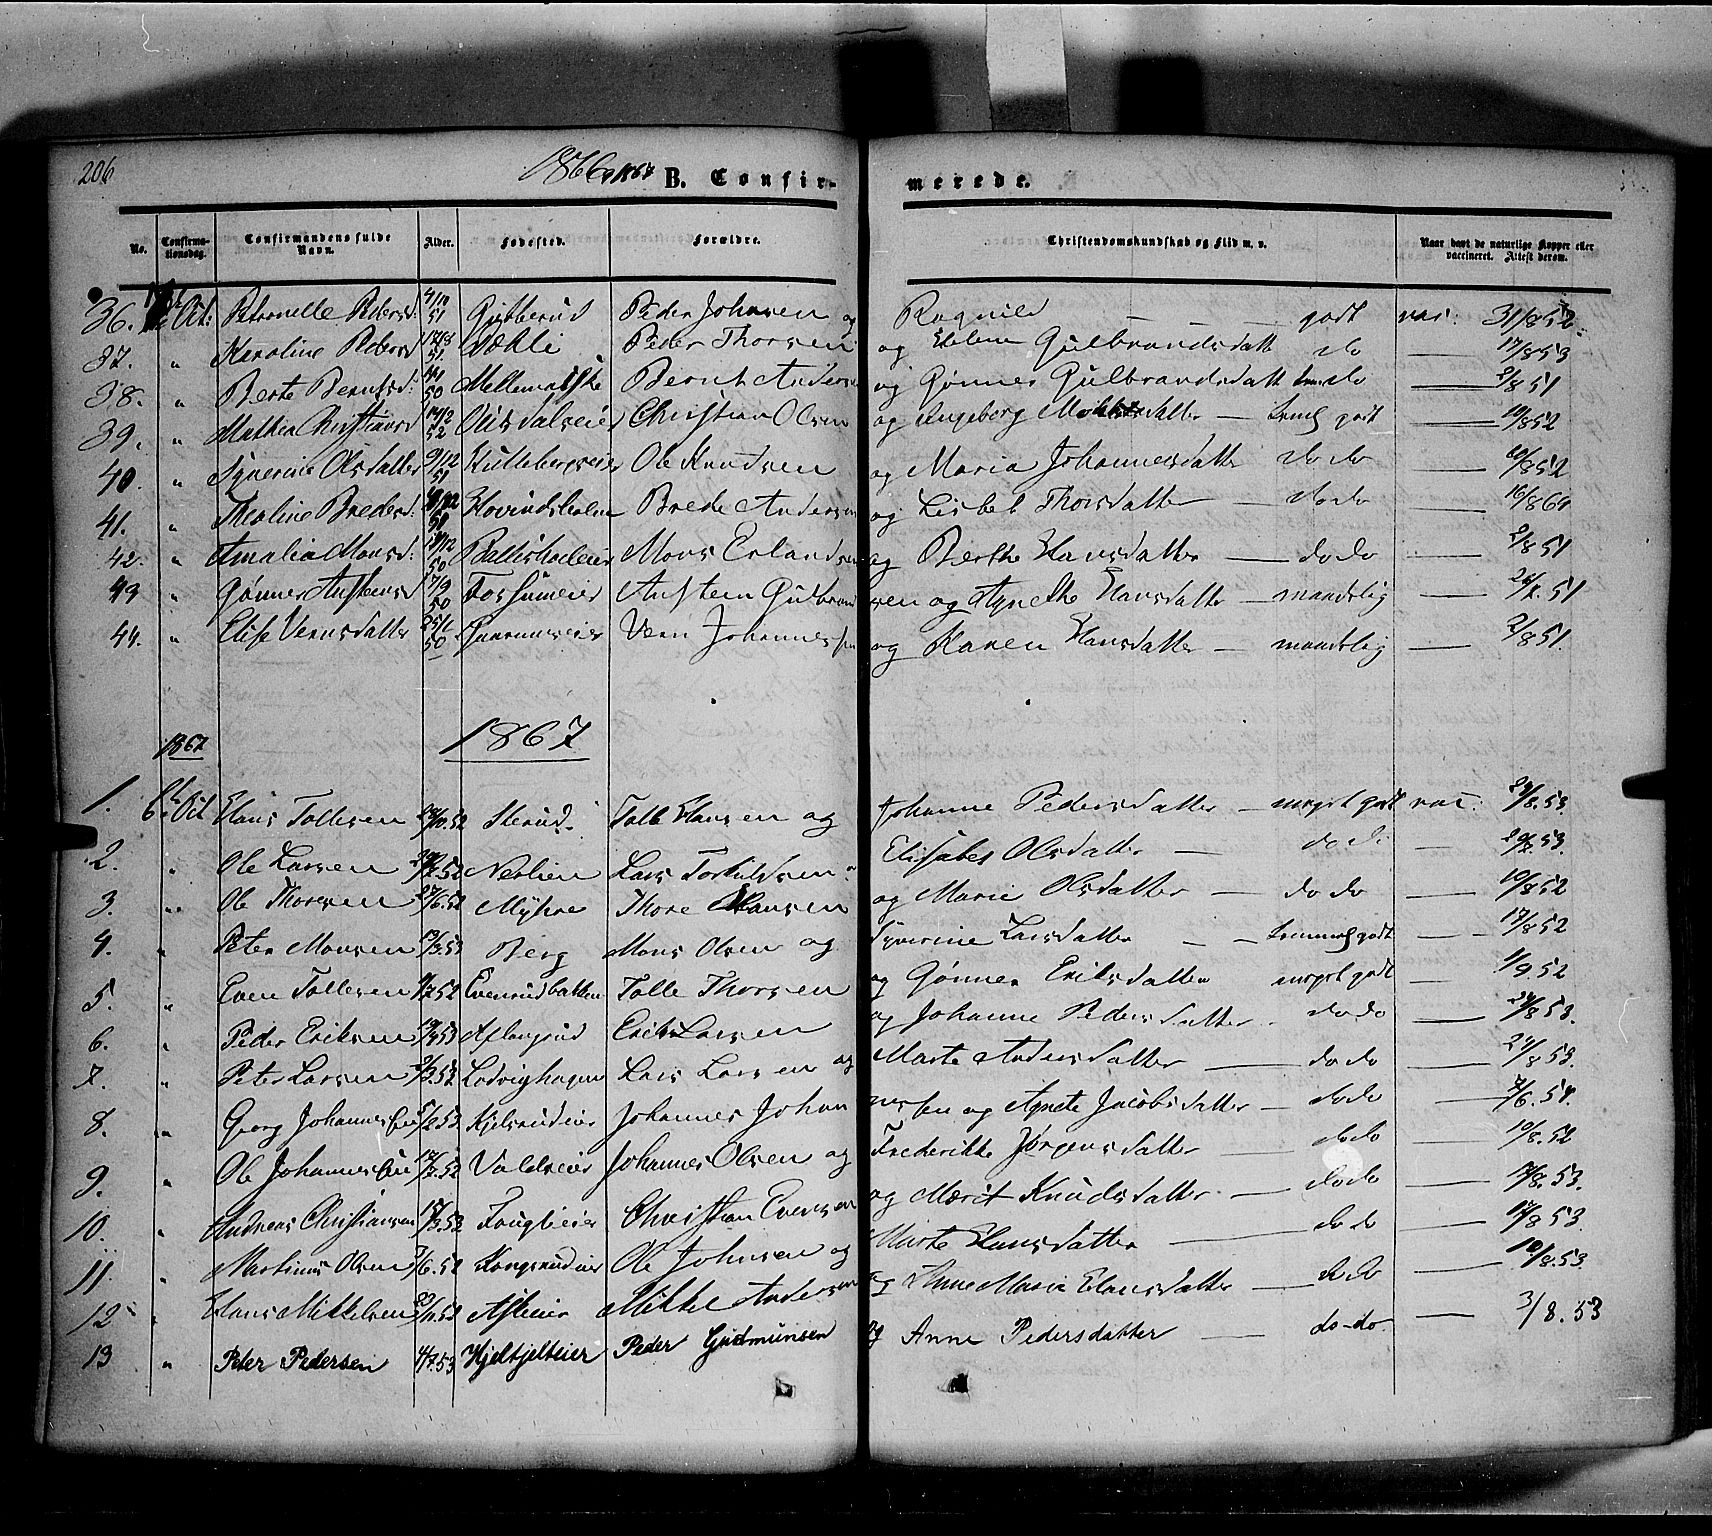 206
1866 og 1867 B. Confirmerede.
No. Confirmationsdag. Confirmandens fulde Navn. Alder. Fødested. Forældre. Christendomskundskab og Flid m. v. Naar havt de naturlige Kopper eller vaccineret. Attest derom.
36. Oct: Petronelle Pedersd: 4/10 51 Peder Johnsen og Ragnild — godt vac: 31/8 52
37. " Karoline Pedersd: 51 Væhle Peder Thorsen og Helene Gulbrandsdatt do — 17/8 53
38. " Berte Berntsd: 50 Mellemaschke Bernt Andersen og Gønner Gulbrandsdatt do — 2/8 51
39. " Mathea Christiansd 52 Christian Olsen og Ingeborg — temml godt — 19/8 52
40. " Syverine Olsdatter 9/12 51 Kullebergseier Ole Knudsen og Maria Johannesdatter do do — 20/8 52
41. " Thealine Bredesd: 51 Hovindsholm Brede Andersen og Lisbet Thorsdatter — do do — 16/8 61
42. " Amalia Monsd: 50 Mons Erlandsen og Berthe Hansdatter — do do — 2/8 51
43 " Gønner Anstensd 17/9 50 Fossumeier Ansten Gulbrandsen og Agnethe Hansdatter — maadelig — 51
44. " Elise Vernsdatter 50 Vern Johannessen og Karen Hansdatter — maadelig — 2/8 51.
1867 1867
1. 6te Oct Hans Tollefsen 52 Sterud. Tolle Hansen og Johanne Pedersdatter — meget godt vac: 24/8. 53.
2. " Ole Larsen 52 Nerlien Lars Torkildsen og Elisabet Olsdatter — do do — 53.
3. " Ole Thoresen 27/6. 52 Myhre Thore Hansen og Marie Olsdatter — do do — 10/8 52
4. " Peter Monsen 13/3. 53 Berg Mons Olsen og Syverine Larsdatter — temmel godt — 17/8 52
5. " Even Tollefsen 52 Evenrudbakken Tolle Thorsen og Gønner Eriksdatter meget godt — 1/9. 52
6. " Peder Eriksen 53 Aslangrud Erik Larsen og Johanne Pedersdatter — do do — 24/8 53.
7. " Peter Larsen 53 Lodvighagen Lars Larsen og Marte Andersdatter — do do — 24/8 53.
8. " Georg Johannessen 5/2. 53 Kjelsrudeier Johannes Johannessen og Agnete Jacobsdatter — do do — 7/6. 54.
9. " Ole Johannessen 52 Valdseier Johannes Olsen og Frederikke Jørgensdatter — do do — 10/8. 52
10. " Andreas Christiansen 17/3. 53 Fauglieier Christian Evensen og Marit Knudsdatter — do do — 3/8. 53.
11 " Martinus Olsen /6. 52 Kongsrudeier Ole Johnsen og Marte Hansdatter — do do — 17/8 53.
12 " Hans Mikkelsen 29/11. 52 Askeier Mikkel Andersen og Anne Maria Hansdatter — do do — 10/8. 53
13 " Peter Pedersen 4/7. 53 Hjeltjelteier Peder Gudmunsen og Anne Pedersdatter — do-do. — 3/8. 53